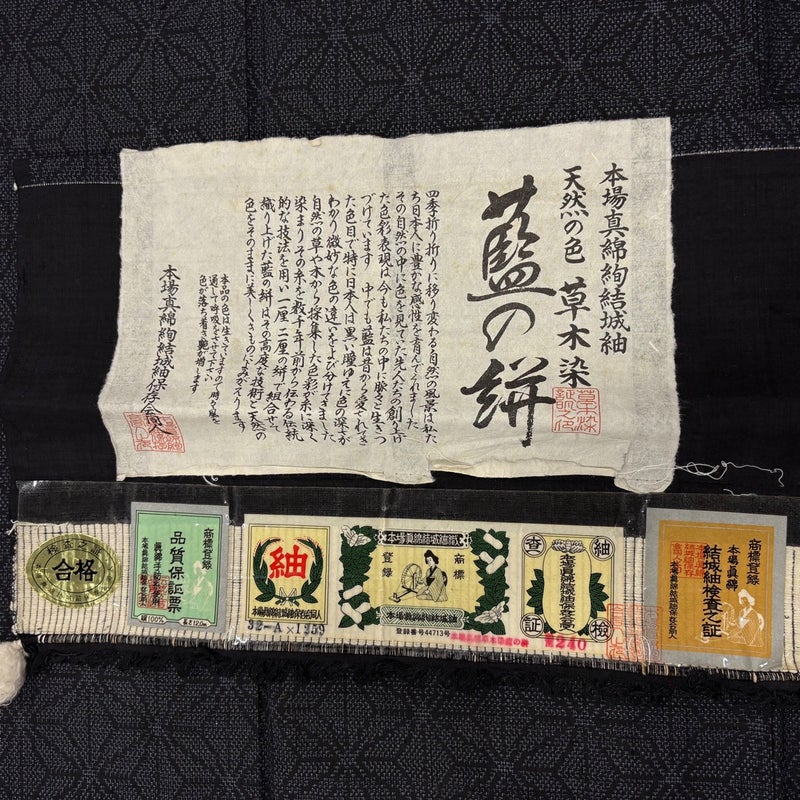 本場真綿絢結城紬
天然の色 草木染
藍の絣
四季折り折りに移り変わる自然の風景は私た
ち日本人に豊かな感性を育んでくれました
その自然の中に色を見てゝた先人たちの創り上げ
た色彩表現は今も私たちの中に脈々と生きつ
づけています 中でも藍は昔から愛されてき
た色目で特に日本人は黒い瞳ゆえに色の深さが
わかり微妙な色の違いをよび分けてきました
自然の草や木から採集した色彩が糸に深く
染まりその糸を数千年前から伝わる伝統
的な技法を用い一厘二厘の絣で組合せて
織り上げた藍の絣はその高度な技術と天然の
色をそのままに美しくきものになみがえります
本品の色は生きていますので時々風を
通して呼吸をさせて下さい
色が落ち着き艶が増します
本場真綿絢結城紬保存会人
合格
商標登録
品質保証票
絹100%
長さ12.0m
紬
本場真綿絢結城紬保存会同人
32-A×1959
本場真綿結城織
登録
商標
登録番号44713号
査
紬
証
検
240
商標登録
本場真綿
結城紬検査之証